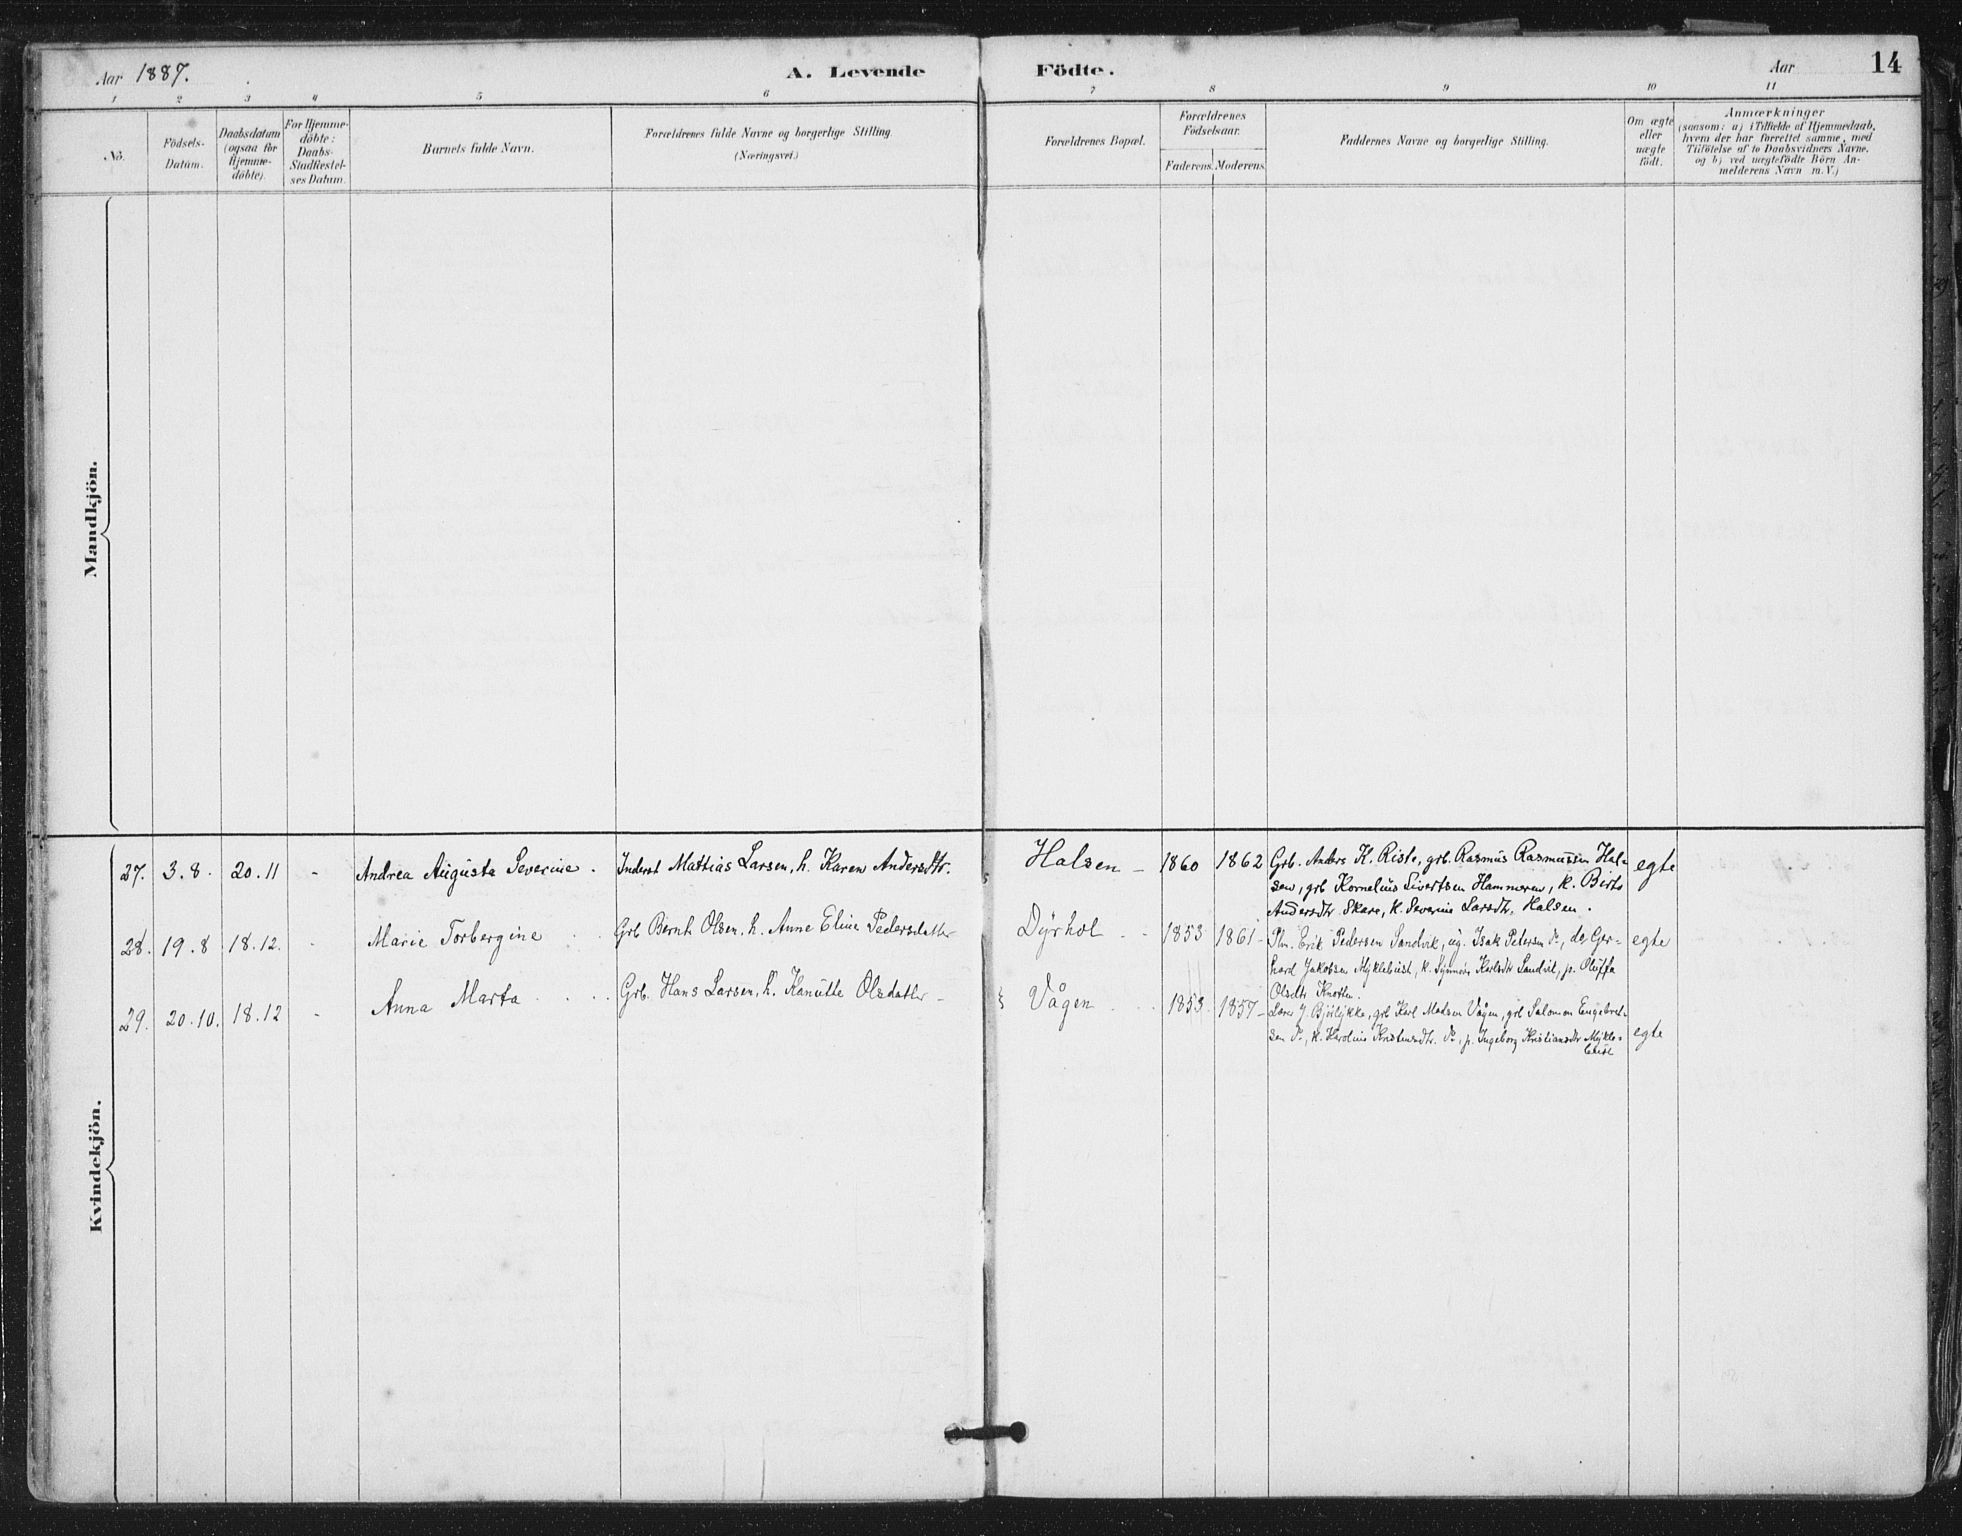 Aar 1887.
A. Levende Födte.
Aar
14
1 2 3 4 5 6 7 8 9 10 11
No.
Födsels-
Datum.
Daabsdatum
(ogsaa for
Hjemme-
døbte).
For Hjemme-
døbte:
Daabs-
Stadfæstel-
ses Datum.
Barnets fulde Navn.
Forældrenes fulde Navne og borgerlige Stilling.
(Næringsvei.)
Forældrenes Bopæl.
Forældrenes
Födselsaar.
Faderens. Moderens.
Faddernes Navne og borgerlige Stilling.
Om ægte
eller
uægte
födt.
Anmærkninger
(saasom: a) i Tilfælde af Hjemmedaab,
hvem der har forrettet samme, med
Tilföielse af to Daabsvidners Navne,
og b) ved uægtefödte Börn An-
melderens Navn m. V.)
Mandkjön.
Kvindekjön.
27. 3.8. 20.11 - Andrea Augusta Severine. Inderst Mattias Larsen, h. Karen Andersdtr. Halsen - 1860 1862 Grb. Anders K. Riste, grb. Rasmus Rasmussen Hal-
sen, grb Kornelius Sivertsen Hammeren, k. Birte
Andersdtr Skare, k. Severine Larsdtr. Halsen.
egte
28. 19.8 18.12. - Marie Torbergine Grb Bernt Olsen, h. Anne Eline Pedersdatter Dyrhol 1853 1861 - Pln. Erik Pedersen Sandvik, ug. Isak Petersen do, do Ger-
hard Jakobsen Myklebust, k. Synnøve Karlsdtr Sandvik, p. Oluffa
Olsdtr Knotten.
egte
29. 20.10. 18.12 - Anna Marta Grb. Hans Larsen, h. Kanutte Olsdatter - Vågen 1853. 1857 - Lærer J. Bjulykke, grb Karl Madsen Vågen, grb Salomon Engebret-
sen do, k. Karoline Kristensdtr. do, p. Ingeborg Kristiansdtr Mykle-
bust
egte